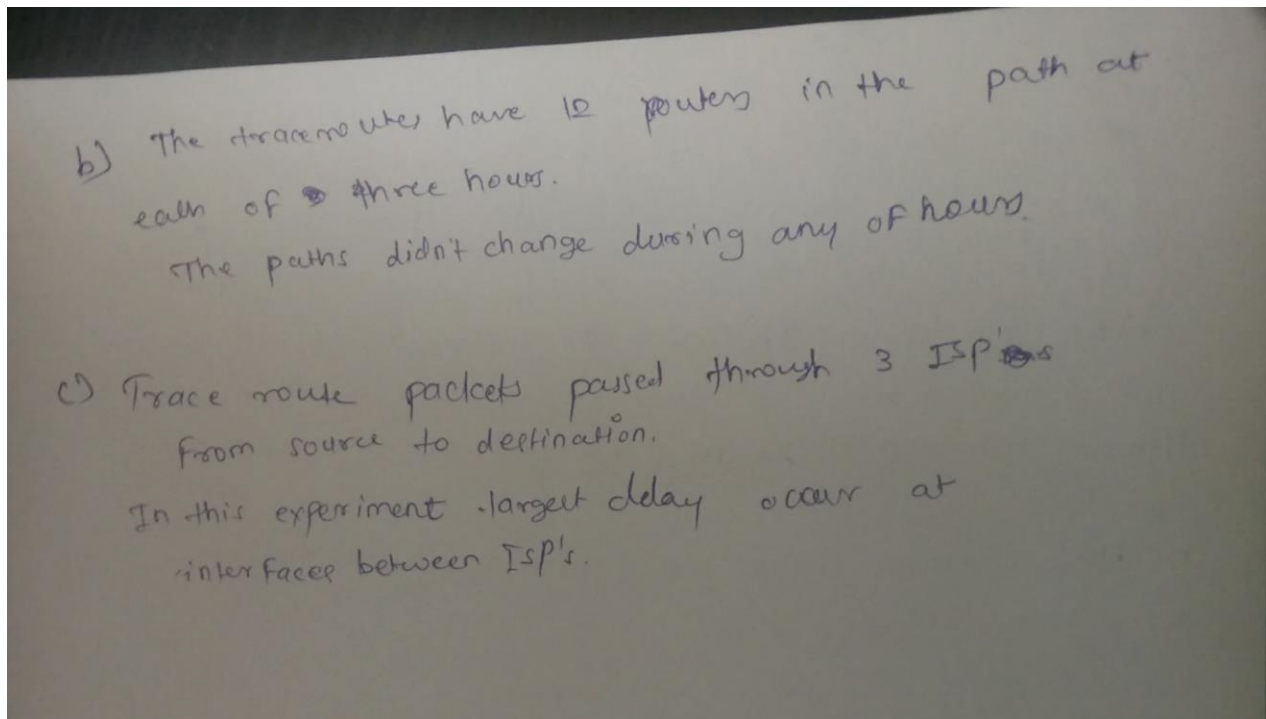 b) The traceroutes have 12 routers in the path at
each of three hours.
The paths didn't change during any of hours.
c) Trace route packets passed through 3 ISP's
from source to destination.
In this experiment largest delay occur at
interfaces between ISP's.